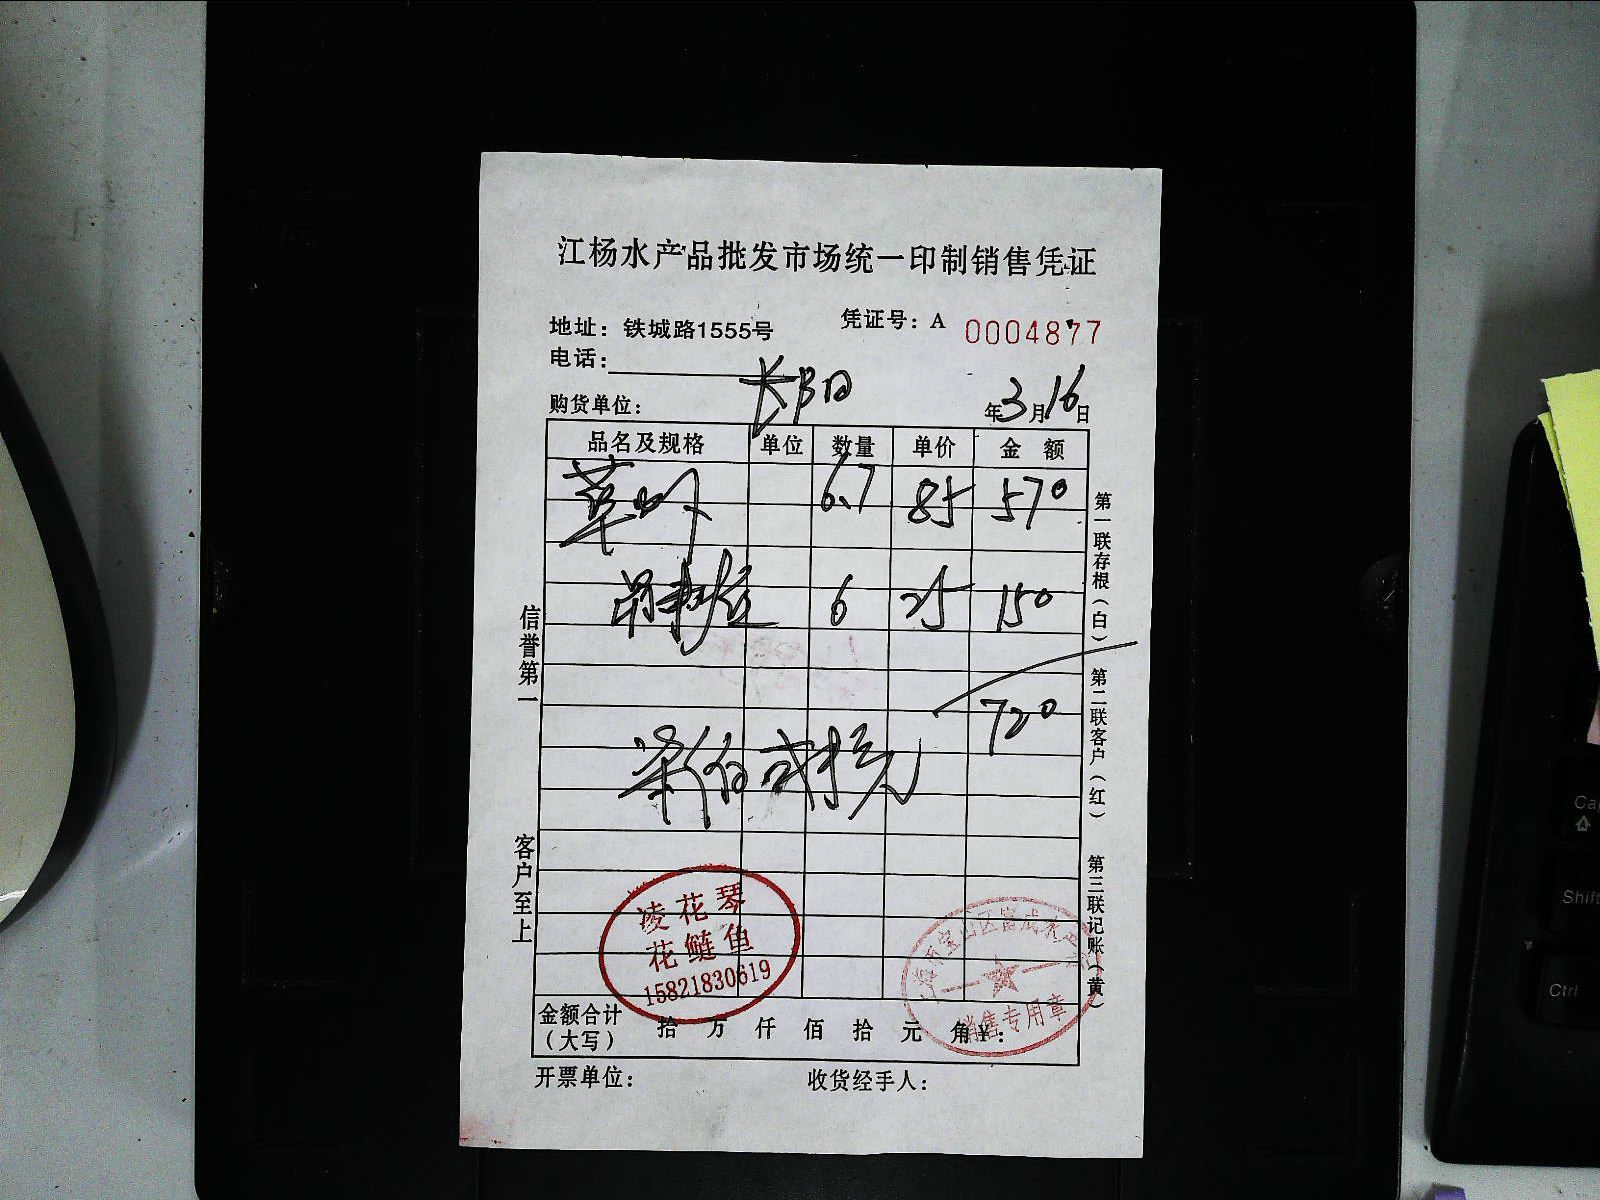 江杨水产品批发市场统一印制销售凭证
地址：铁城路1555号
凭证号：A 0004877
电话：
购货单位：
年3月16日
品名及规格 单位 数量 单价 金 额
6.7 85 570
6 25 150
720
柒佰贰拾元
凌花琴
花鲢鱼
15821830619
销售专用章
金额合计（大写） 拾 万 仟 佰 拾 元 角 ¥：
开票单位： 收货经手人：
信誉第一
客户至上
第一联存根（白）
第二联客户（红）
第三联记账（黄）
Shift
Ctrl